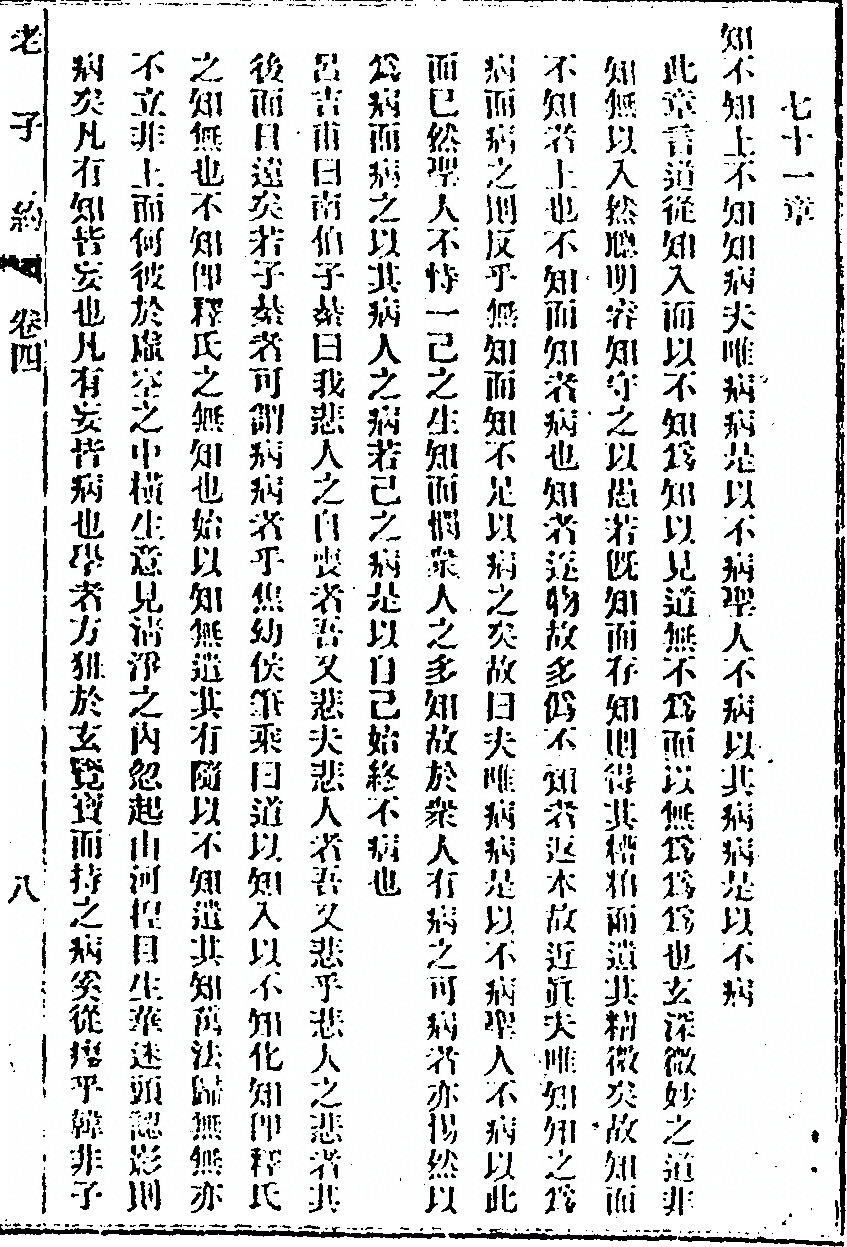 七十一章
知不知上不知知病夫唯病病是以不病聖人不病以其病病是以不病
此章言道從知入而以不知爲知以見道無不爲而以無爲爲爲也玄深微妙之道非
知無以入然聰明睿知守之以愚若既知而存知則得其糟粕而遺其精微矣故知而
不知者上也不知而知者病也知者逐物故多僞不知者返本故近眞夫唯知知之爲
病而病之則反乎無知而知不足以病之矣故曰夫唯病病是以不病聖人不病以此
而已然聖人不恃一己之生知而憫衆人之多知故於衆人有病之可病者亦惕然以
爲病而病之以其病人之病若己之病是以自己始終不病也
呂吉甫曰南伯子綦曰我悲人之自喪者吾又悲夫悲人者吾又悲乎悲人之悲者其
後而日遠矣若子綦者可謂病病者乎焦幼侯筆乘曰道以知入以不知化知卽釋氏
之知無也不知卽釋氏之無知也始以知無遣其有隨以不知遣其知萬法歸無無亦
不立非上而何彼於虛空之中橫生意見淸淨之內忽起山河揑目生華迷頭認影則
病矣凡有知皆妄也凡有妄皆病也學者方狃於玄覽寶而持之病奚從瘳乎韓非子
老子約 卷四 八